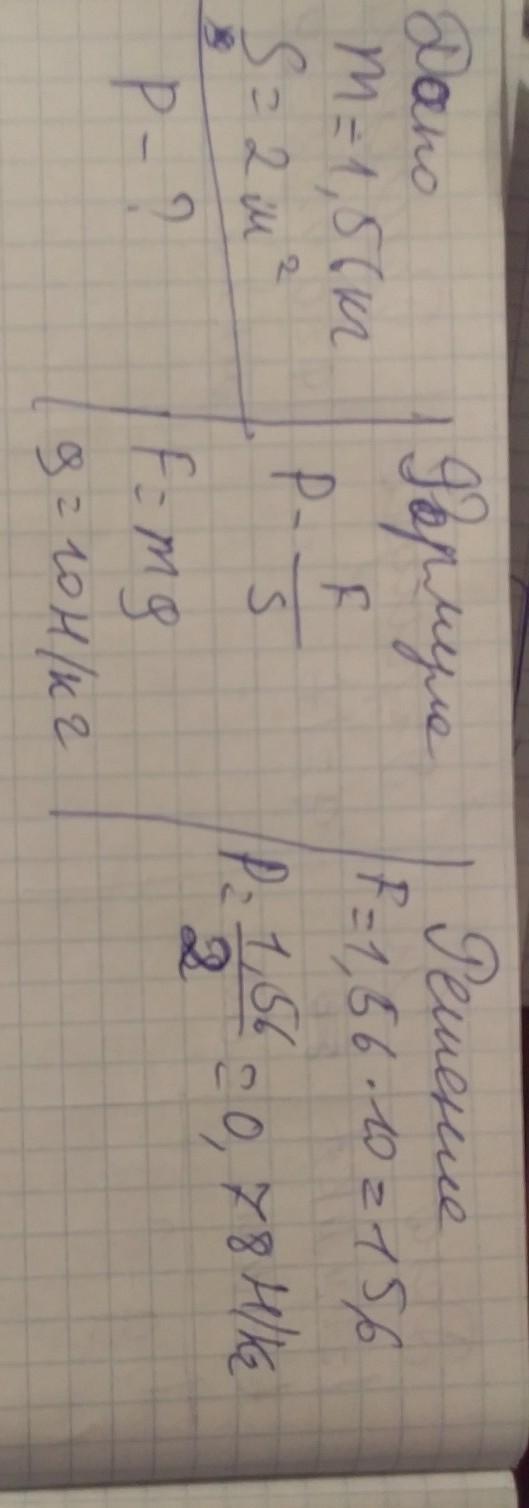 Дано
m = 1,56 кг
S = 2 м²
P - ?
Формула
P - F/S
F = mg
g = 10 Н/кг
Решение
F = 1,56 · 10 = 156
P = 1,56/2 = 0,78 Н/кг